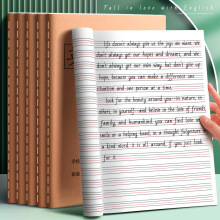 Fall in love with English
Life doesn't always give us the joys we want. We
don't always get our hopes and dreams, and we
don't always get our own way. but don't give up
hope, because you can make a difference one
situation and one person at a time.
look for the beauty around you--in nature, in
others, in yourself--and believe in the love of friends,
family, and humankind. you can find love in a
smile or a helping hand, in a thought fulgesture or
a kind word. it is all around, if you just look
for it